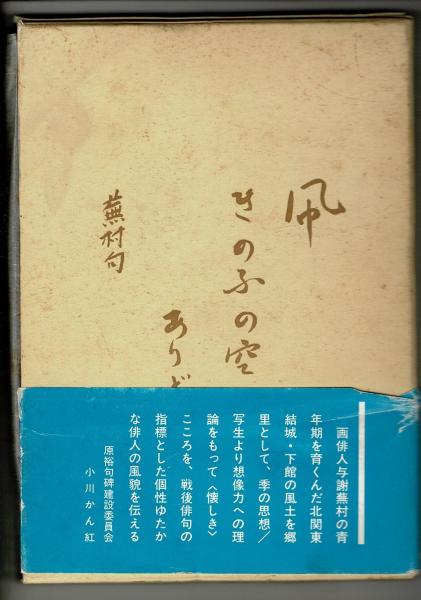 凧
きのふの空
ありど
蕪村句
画俳人与謝蕪村の青
年期を育くんだ北関東
結城・下館の風土を郷
里として、季の思想/
写生より想像力への理
論をもって〈懐しき〉
こころを、戦後俳句の
指標とした個性ゆたか
な俳人の風貌を伝える
原裕句碑建設委員会
小川かん紅